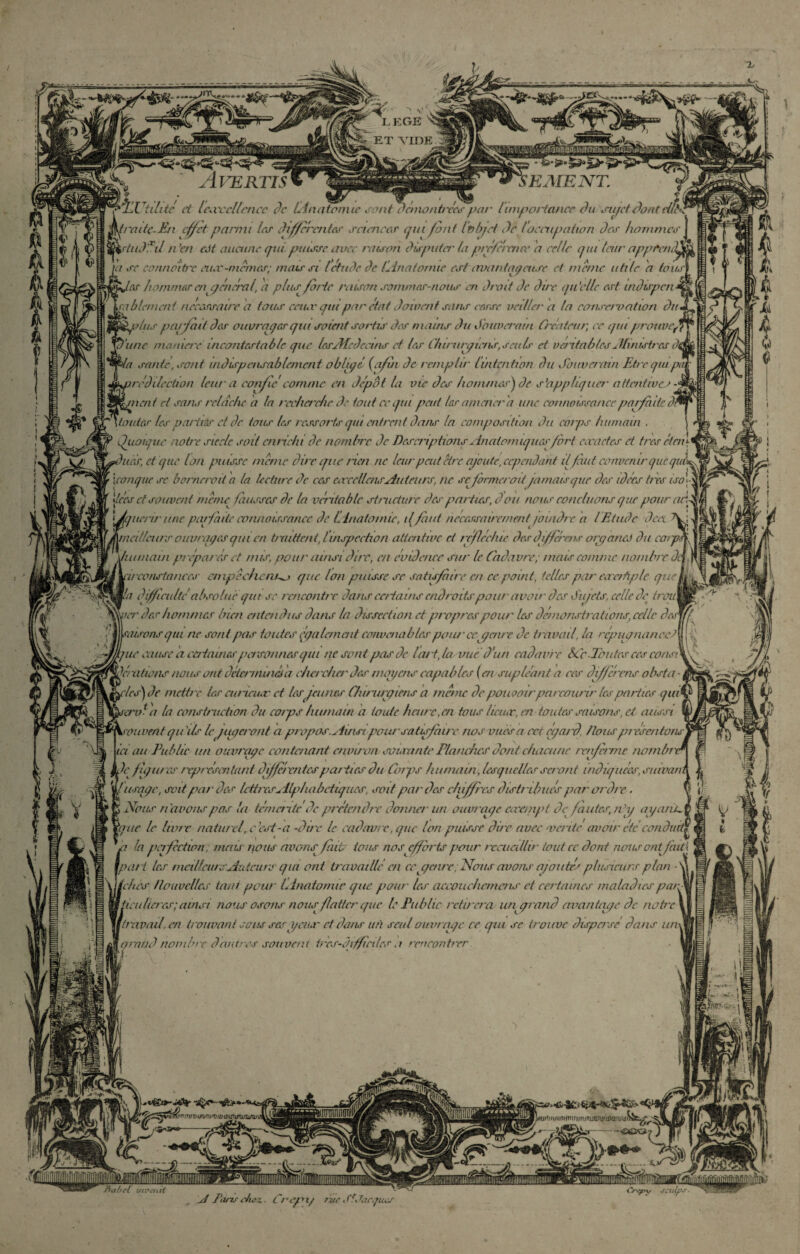 2
LEGE
ET VIDE
AVERTISSEMENT.
L'Utilité et l'excellence de L'Anatomie sont démontrées par l'importance du sujet dont elle
traite. En effet parmi les différentes sciences qui font l'objet de l'occupation des hommes
n'en est aucune qui puisse avec raison disputer la préférence a celle qui leur apprend
a se connoitre eux-mémes; mais si l'étude de L'Anatomie est avantageuse et méme utile a tous
les hommes en général, a plus forte raison sommes-nous en droit de dire qu'elle est indispen-
sablement nécessaire a tous ceux qui par état doivent sans cesse veiller a la conservation du
plus parfait des ouvrages qui soient sortis des mains du Souverain Créateur; ce qui prouve,
d'une maniere incontestable que les Medecins et les Chirurgiens, seuls et véritables Ministres de
la santé, sont indispensablement obligé (afin de remplir l'intention du Souverain Etre qui par
prédilection leur a confié comme en dépôt la vie des hommes) de s'appliquer attentive-
ment et sans relâche a la recherche de tout ce qui peut les amener a une connoissance parfaite de
toutes les parties et de tous les ressorts qui entrent dans la composition du corps humain .
Quoique notre siecle soit enrichi de nombre de Descriptions Anatomiques fort exactes et tres éten-
dues, et que l'on puisse méme dire que rien ne leur peut étre ajouté, cependant il faut convenir que qui-
conque se borneroit a la lecture de ces excellens Auteurs, ne se formeroit jamais que des idées tres iso-
lées et souvent méme fausses de la véritable structure des parties, d'ou nous concluons que pour ac-
querir une parfaite connoissance de L'Anatomie, il faut nécessairement joindre a l'Etude des
meilleurs ouvrages qui en traittent, l'inspection attentive et refléchie des différens organes du corps
humain préparés et mis, pour ainsi dire, en évidence sur le Cadavre; mais comme nombre de
circonstances empêchent que l'on puisse se satisfaire en ce point, telles par exemple que
la difficulté absolue qui se rencontre dans certains endroits pour avoir des Sujets, celle de trou-
ver des hommes bien entendus dans la dissection et propres pour les démonstrations, celle des
saisons qui ne sont pas toutes également convenables pour ce genre de travail, la répugnance
que cause a certaines personnes qui ne sont pas de l'art, la vue d'un cadavre &c. Toutes ces consi-
dérations nous ont déterminé a chercher des moyens capables (en supléant a ces différens obsta-
cles) de mettre les curieux et les jeunes Chirurgiens a méme de pouvoir parcourir les parties qui
serv.t a la construction du corps humain a toute heure, en tous lieux, en toutes saisons, et aussi
souvent qu'ils le jugeront a propos. Ainsi pour satisfaire nos vues a cet égard, Nous présentons
ici au Public un ouvrage contenant environ soixante Planches dont chacune renferme nombre
de figures représentant différentes parties du Corps humain, lesquelles seront indiquées, suivant
l'usage, soit par des lettres Alphabetiques, soit par des chiffres distribués par ordre .
Nous n'avons pas la témerité de prétendre donner un ouvrage exempt de fautes, n'y ayant
que le livre naturel, c'est-a-dire le cadavre, que l'on puisse dire avec verité avoir été conduit
a la perfection; mais nous avons fait tous nos efforts pour recueillir tout ce dont nous ont fait
part les meilleurs Auteurs qui ont travaillé en ce genre; Nous avons ajouté plusieurs plan -
ches Nouvelles tant pour L'Anatomie que pour les accouchemens et certaines maladies par-
ticulieres; ainsi nous osons nous flatter que le Public retirera un grand avantage de notre
travail, en trouvant sous ses yeux et dans un seul ouvrage ce qui se trouve dispersé dans un
grand nombre d'autres souvent tres-difficiles a rencontrer
Babel invenit
Crepy sculps.
A Paris chez . Crepy rue S.t Jacques